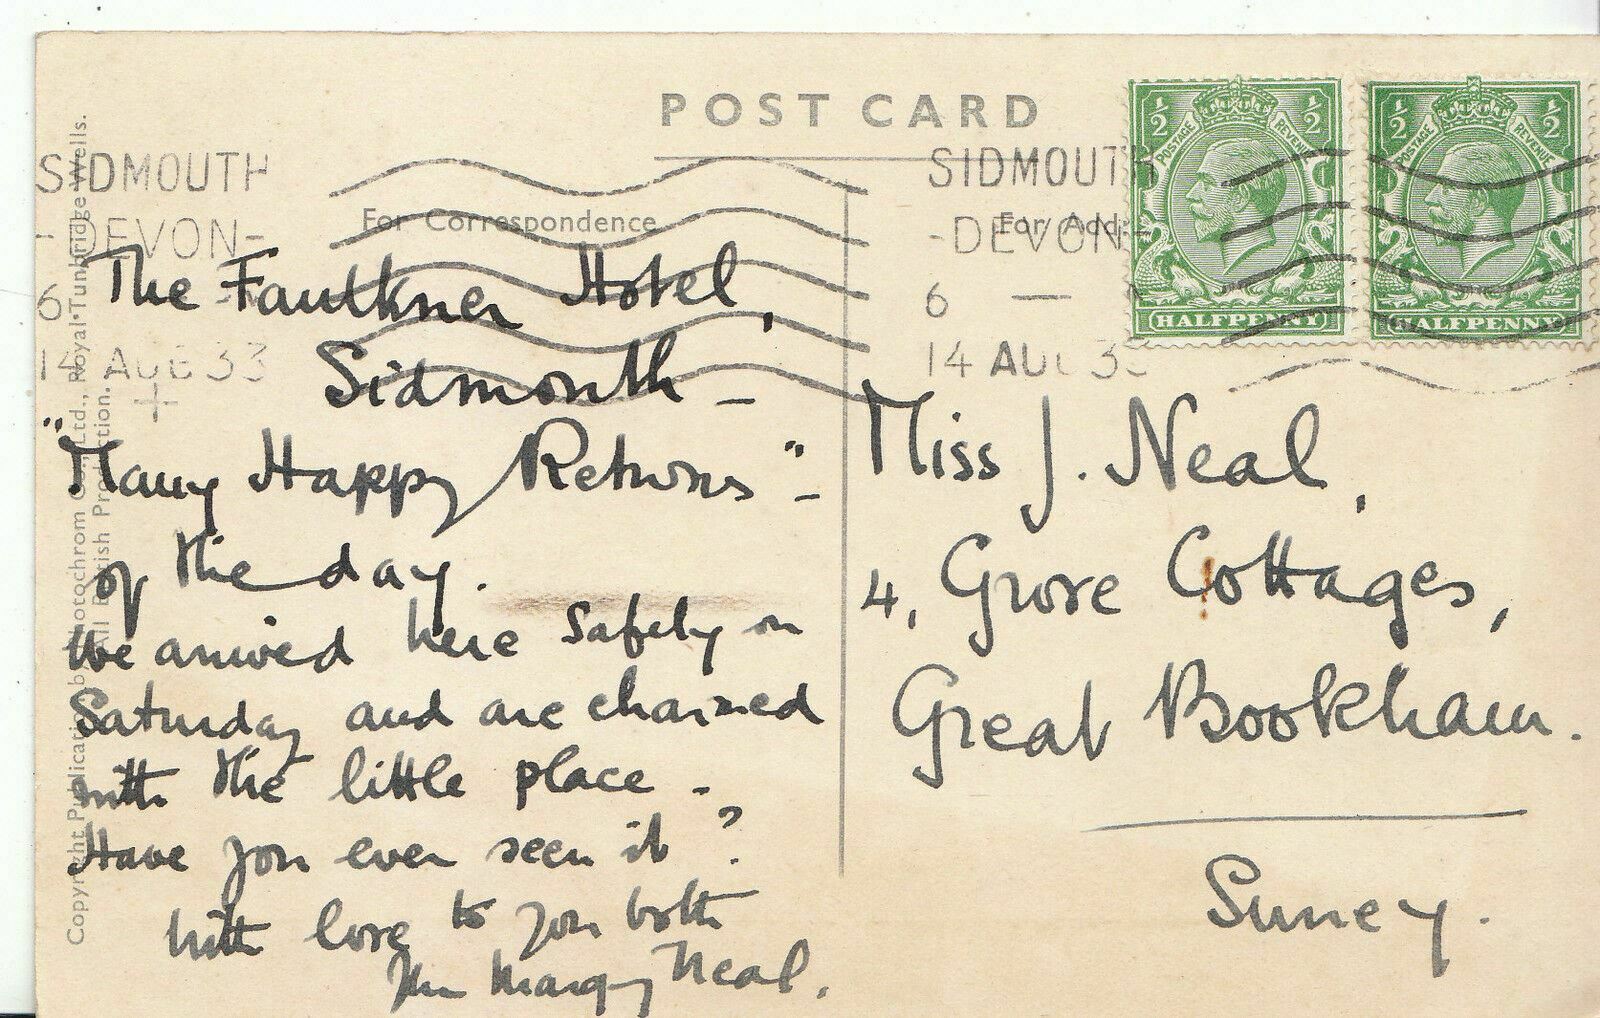 POST CARD
For Correspondence
For Add
SIDMOUTH
-DEVON-
6
14 AUG 33
SIDMOUTH
-DEVON-
6 —
14 AUG 33
½ ½
POSTAGE REVENUE
HALFPENNY
½ ½
POSTAGE REVENUE
HALFPENNY
The Faulkner Hotel,
Sidmouth -
"Many Happy Returns" -
of the day.
We arrived here safely on
Saturday and are charmed
with the little place -
Have you ever seen it ?
With love to you both
Margy Neal.
Miss J. Neal,
4, Grove Cottages,
Great Bookham.
Surrey.
Copyright Publication by Photochrom Co., Ltd., Royal Tunbridge Wells.
All British Production.